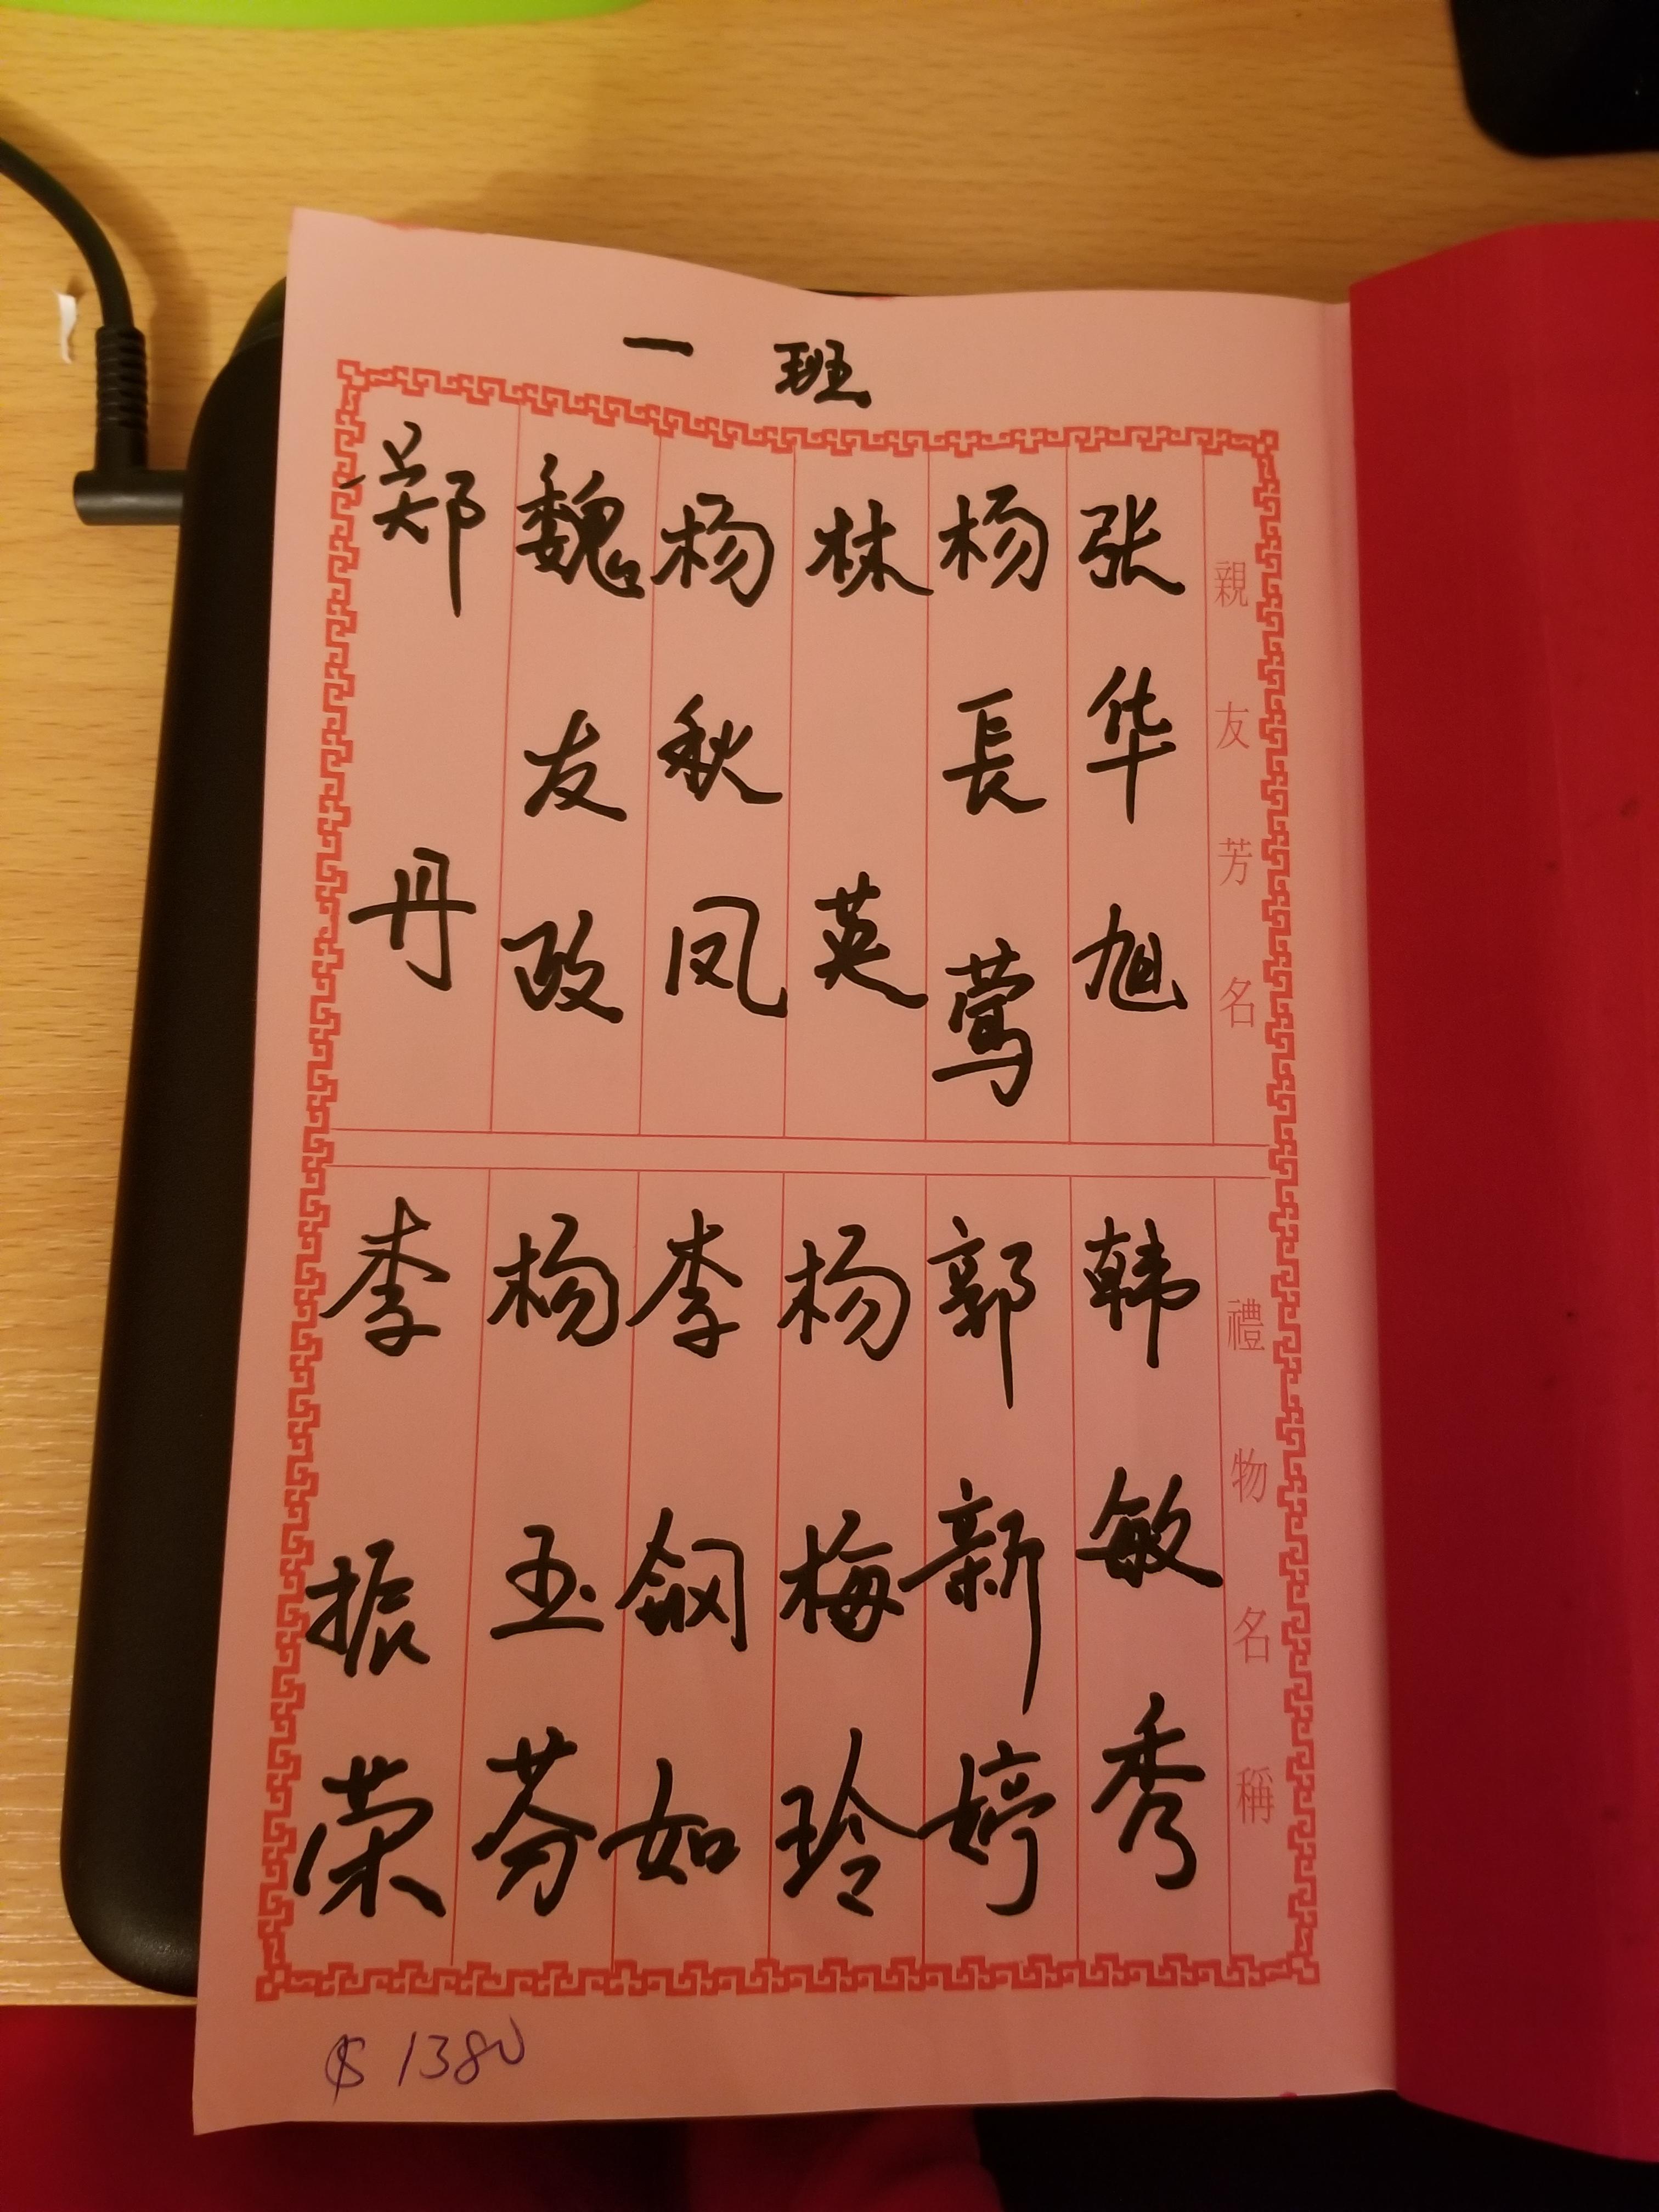 一班
親友芳名
张华旭
杨長莺
林英
杨秋凤
魏友政
郑丹
禮物名稱
韩敏秀
郭新婷
杨梅玲
李钢如
杨玉芬
李振荣
$ 1380